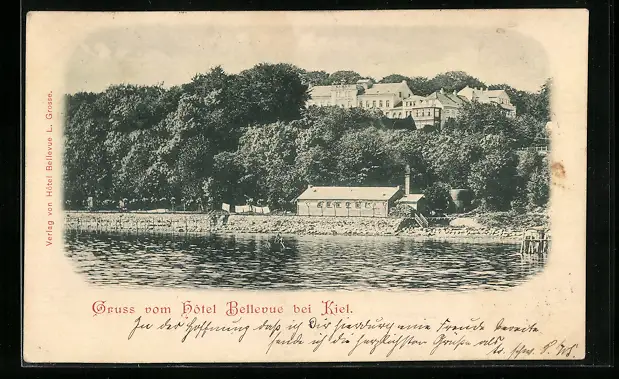 Verlag von Hôtel Bellevue L. Grosse.
Gruss vom Hôtel Bellevue bei Kiel.
In der Hoffnung daß ich Dir hierdurch eine Freude bereite
sende ich die herzlichsten Grüße als